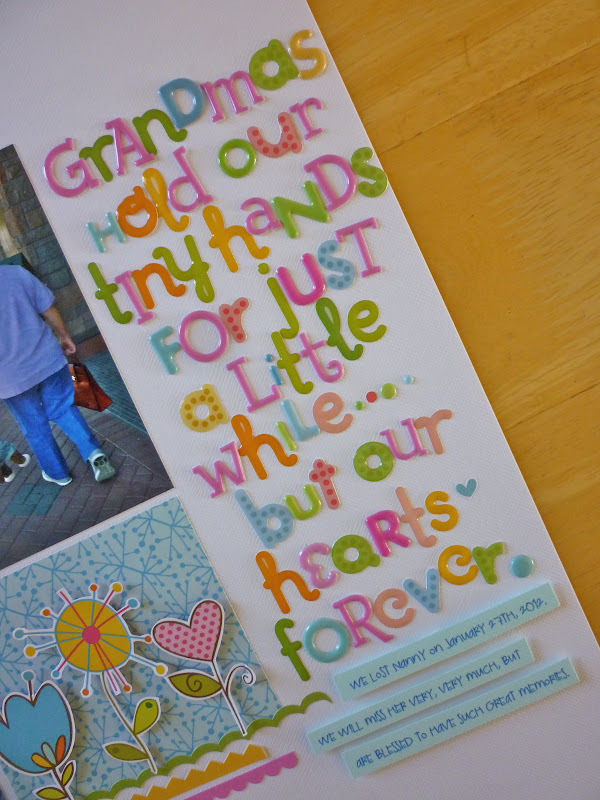 GrANDmas
HOlD our
tiny haNDS
FOR juST
a Little
while...
but our
heaRts
foRever.
WE LOST NANNY ON JANUARY 27TH, 2012.
WE WILL MISS HER VERY, VERY MUCH, BUT
ARE BLESSED TO HAVE SUCH GREAT MEMORIES.